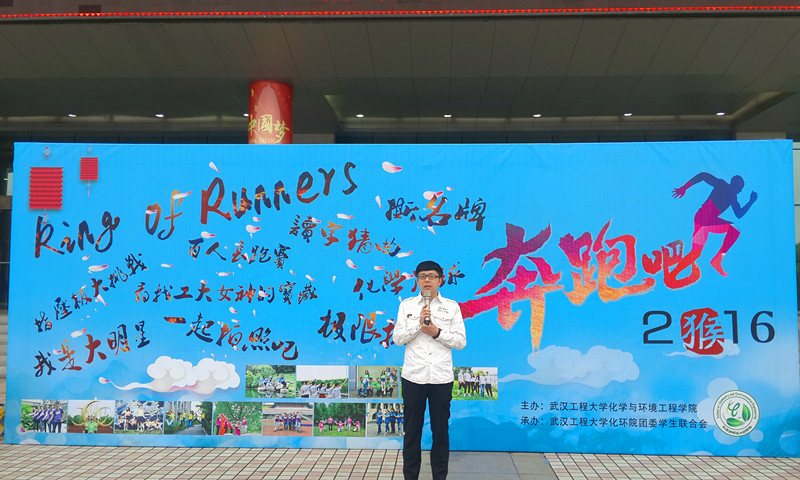 中國梦
Ring of Runners
撕名牌
讀字猜曲
百人長跑賽
指压板大挑戰
尋找工大女神的寶藏
化學
我是大明星
一起拍照吧
极限
奔跑吧
2猴16
主办：武汉工程大学化学与环境工程学院
承办：武汉工程大学化环院团委学生联合会